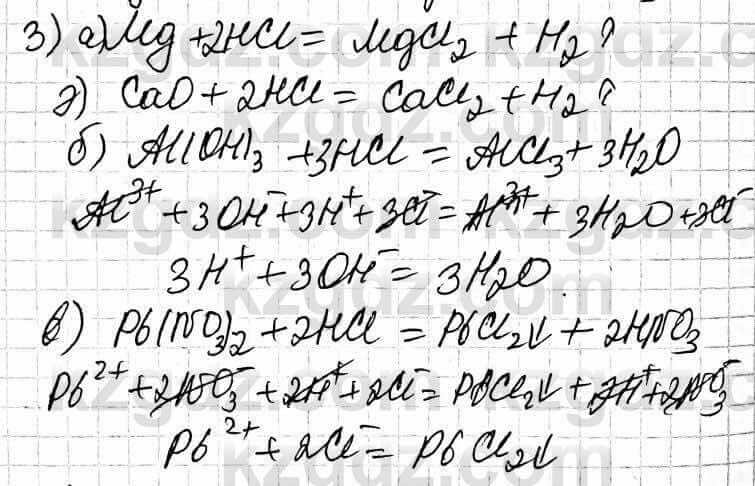 3) а) Mg + 2HCl = MgCl₂ + H₂?
г) CaO + 2HCl = CaCl₂ + H₂?
б) Al(OH)₃ + 3HCl = AlCl₃ + 3H₂O
Al³⁺ + 3OH⁻ + 3H⁺ + 3Cl⁻ = Al³⁺ + 3H₂O + 3Cl⁻
3H⁺ + 3OH⁻ = 3H₂O.
в) Pb(NO₃)₂ + 2HCl = PbCl₂↓ + 2HNO₃
Pb²⁺ + 2NO₃⁻ + 2H⁺ + 2Cl⁻ = PbCl₂↓ + 2H⁺ + 2NO₃⁻
Pb²⁺ + 2Cl⁻ = PbCl₂↓